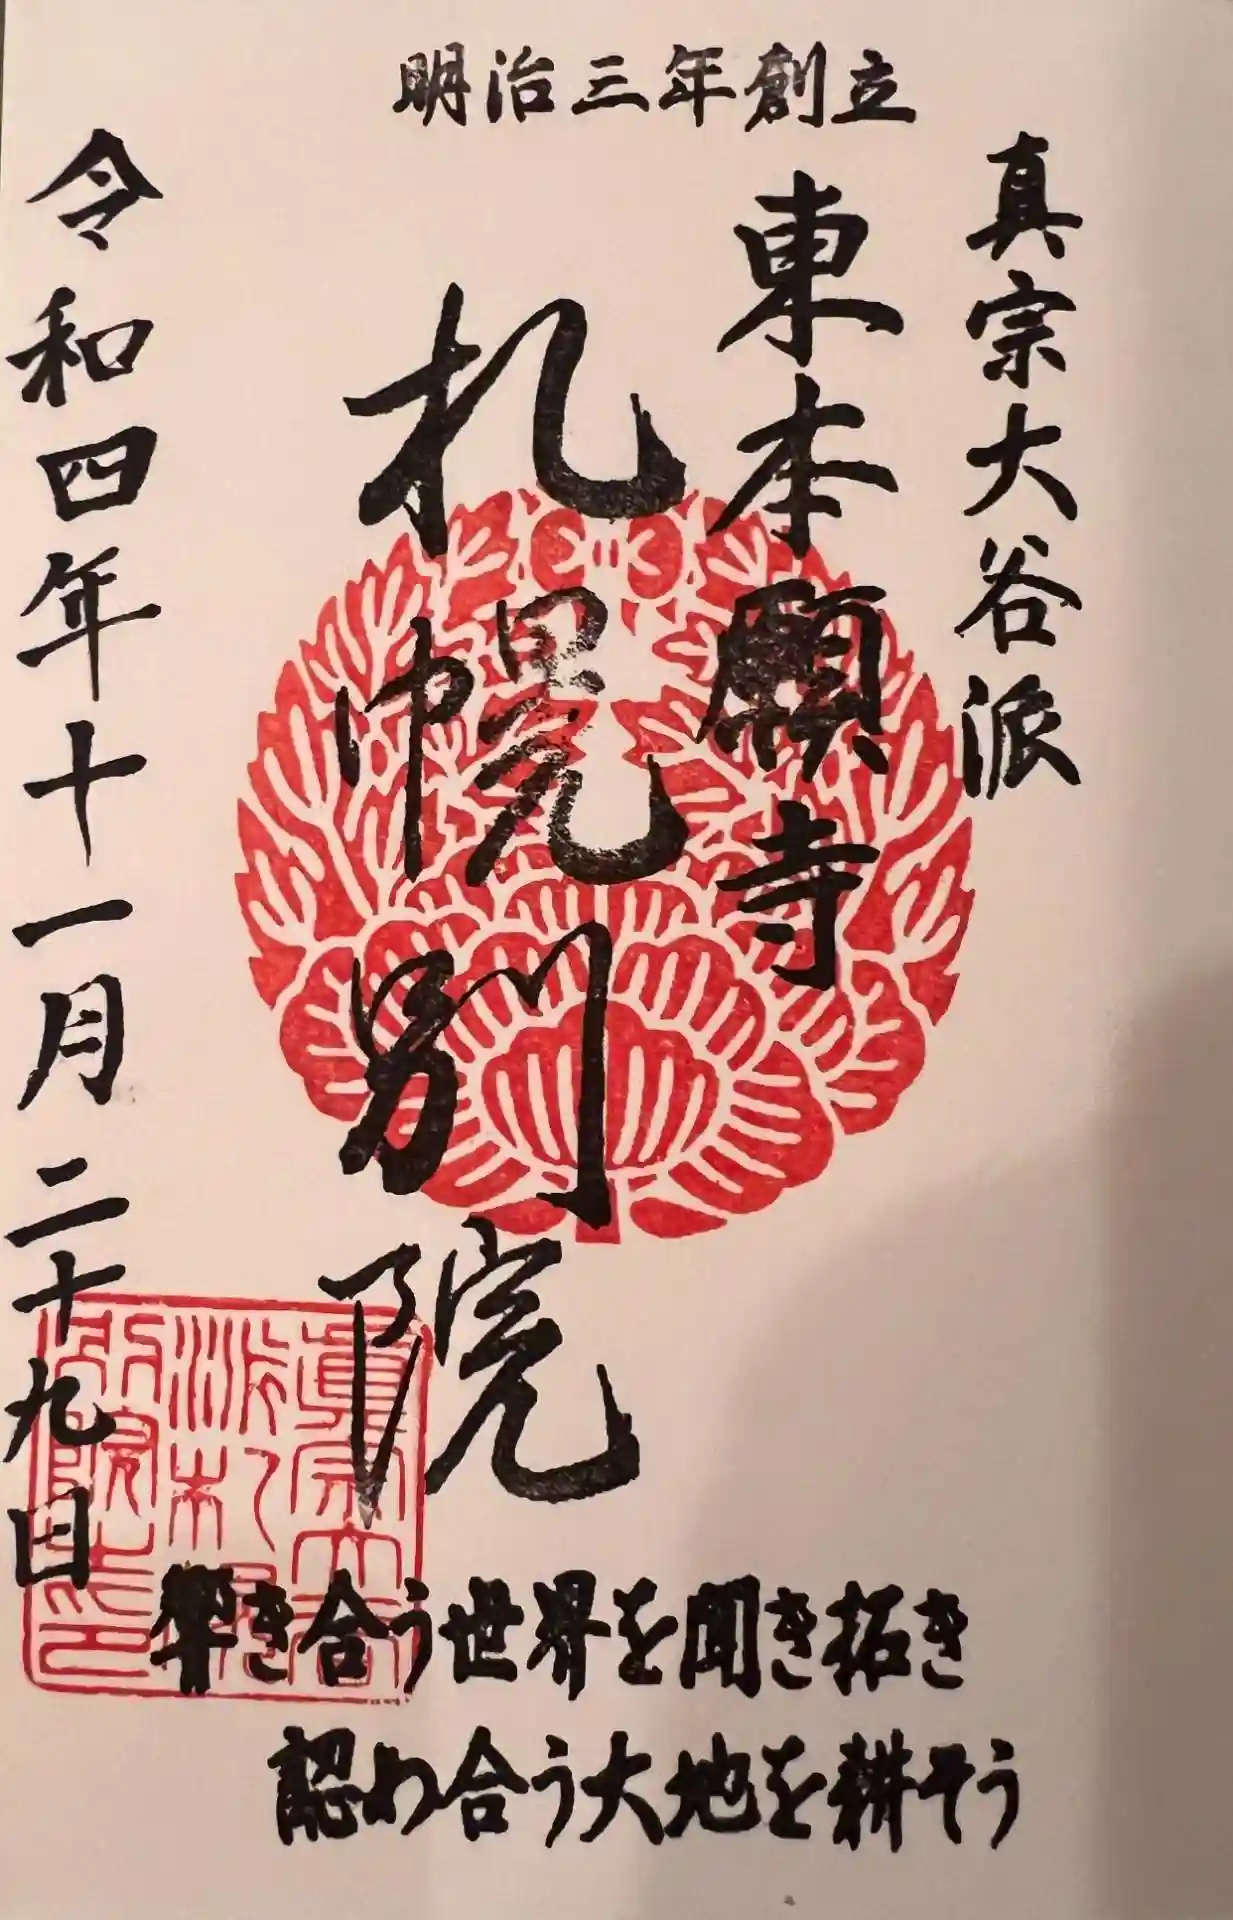 明治三年創立
真宗大谷派
東本願寺
札幌別院
令和四年十一月二十九日
響き合う世界を聞き拓き
認め合う大地を耕そう